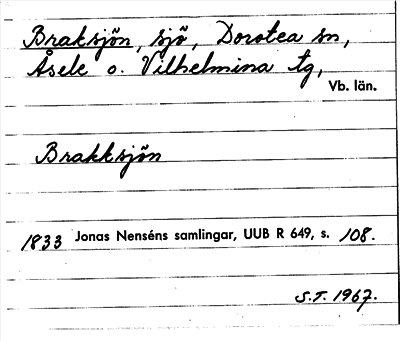 Braksjön, sjö, Dorotea sn,
Åsele o. Vilhelmina tg,
Vb. län.
Brakksjön
1833 Jonas Nenséns samlingar, UUB R 649, s. 108.
S.T. 1967.